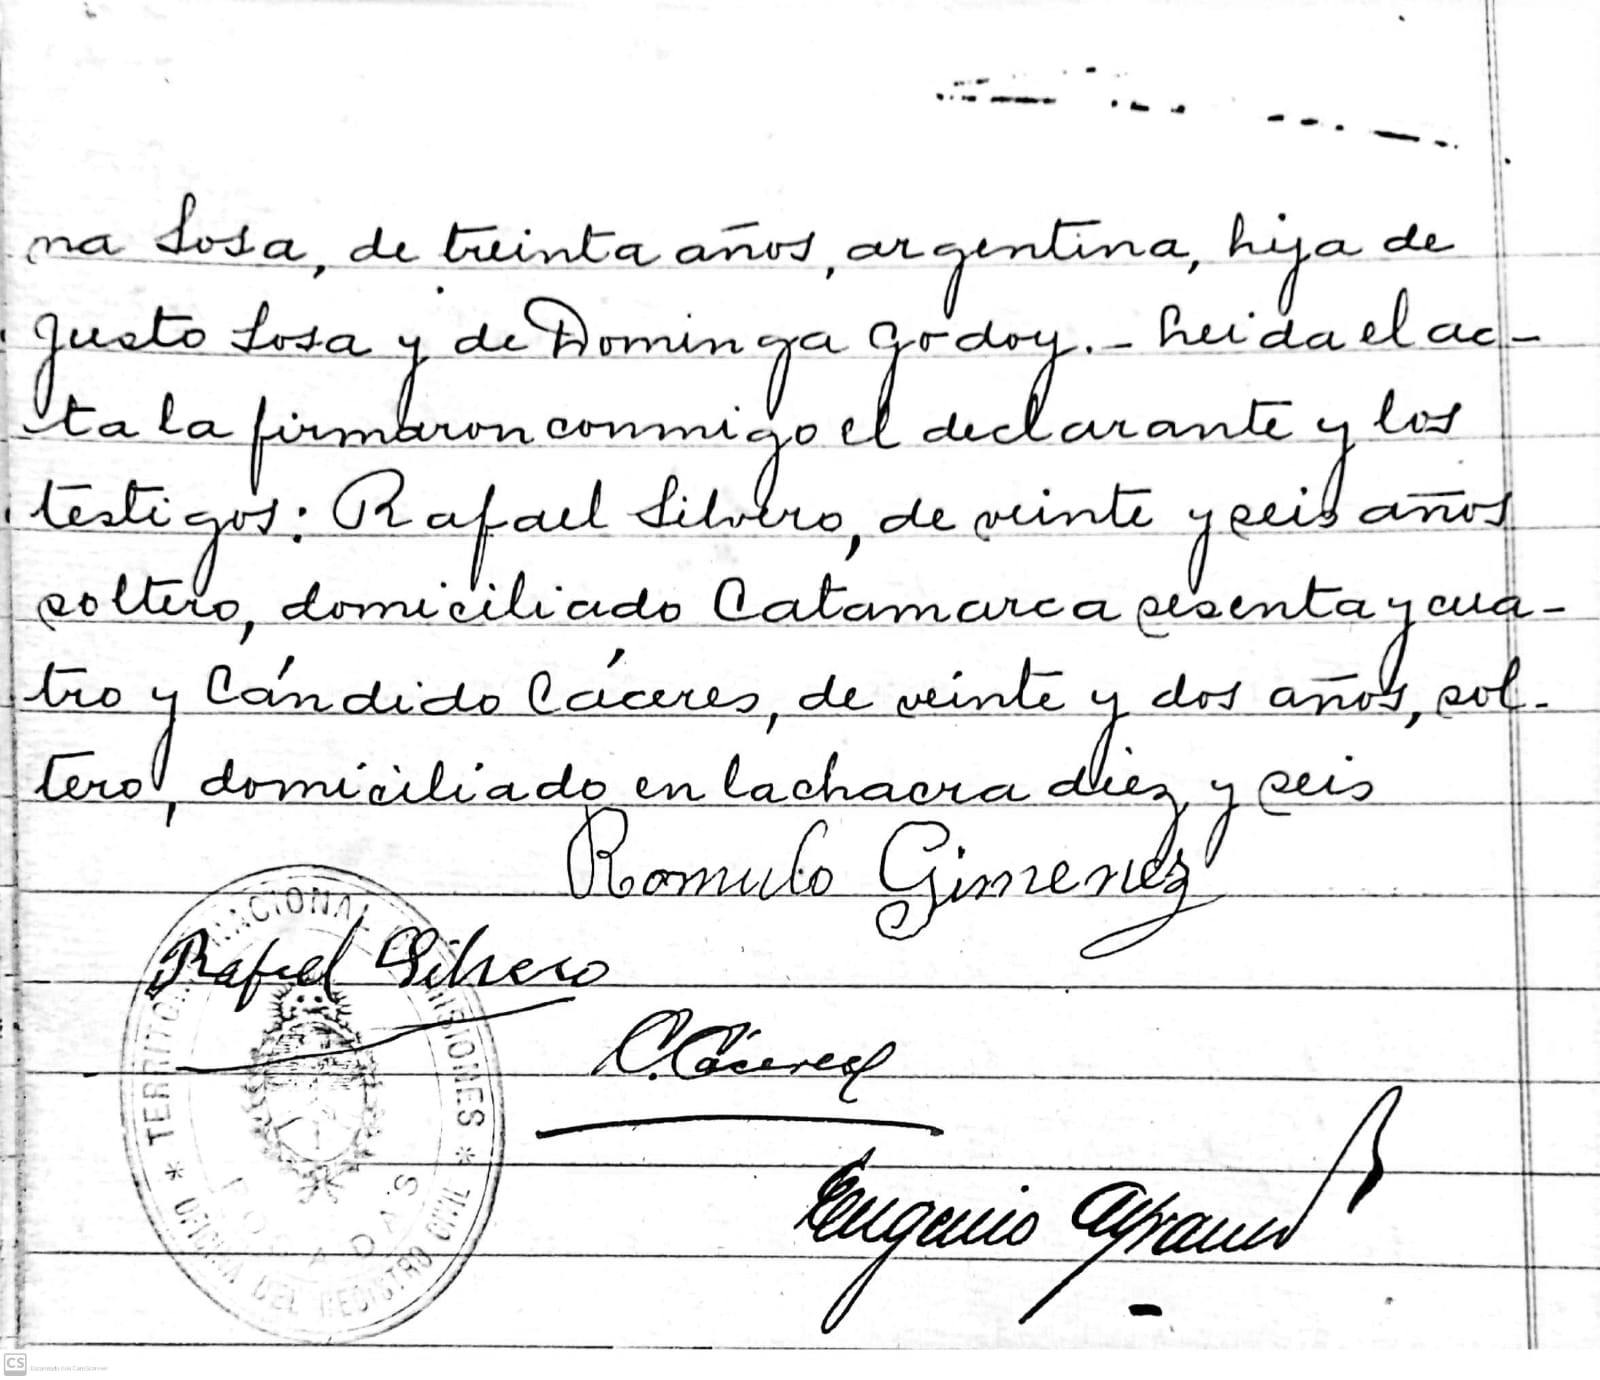 na Sosa, de treinta años, argentina, hija de
Justo Sosa y de Dominga Godoy.- Leida el ac-
ta la firmaron conmigo el declarante y los
testigos: Rafael Silvero, de veinte y seis años
soltero, domiciliado Catamarca sesenta y cua-
tro y Cándido Cáceres, de veinte y dos años, sol-
tero, domiciliado en la chacra diez y seis
Romulo Gimenez
Rafael Silvero
C. Cáceres
Eugenio
TERRITORIO NACIONAL MISIONES
POSADAS
* OFICINA DEL REGISTRO CIVIL *
CS Escaneado con CamScanner